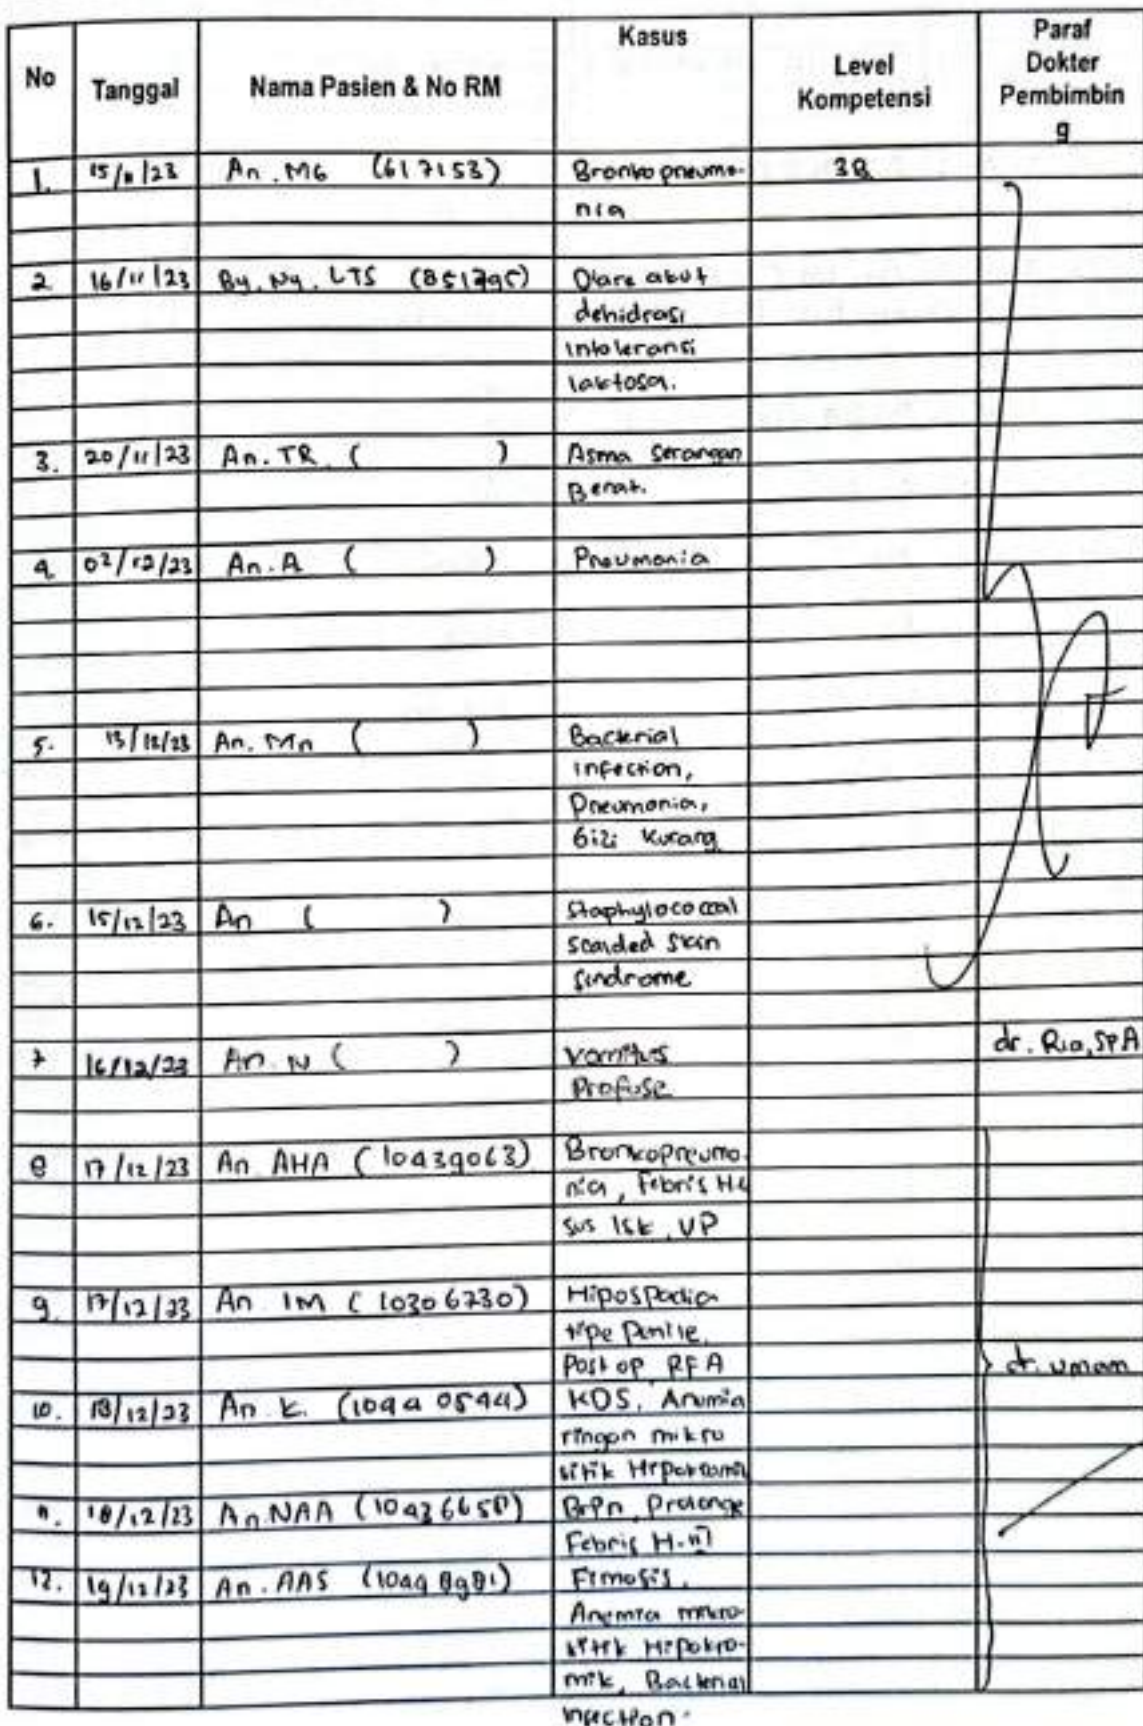 No Tanggal Nama Pasien & No RM Kasus Level Kompetensi Paraf Dokter Pembimbin g
1. 15/11/23 An. MG (617153) Bronkopneumo- 3B
nia
2 16/11/23 By. Ny. LTS Diare akut
dehidrasi
intoleransi
laktosa.
3. 20/11/23 An. TR. ( ) Asma Serangan
Berat.
4. 02/12/23 An. A ( ) Pneumonia
5. 13/12/23 An. Mn ( ) Bacterial
infection,
Pneumonia,
Gizi Kurang
6. 15/12/23 An ( ) Staphylococcal
scalded skin
sindrome
7 16/12/23 An. N ( ) Vomitus dr. Ria, SpA
Profuse
8 17/12/23 An AHA (10439063) Bronkopneumo-
nia, Febris
sus ISK, VP
9. 17/12/23 An IM (10306730) Hipospadia
tipe Penile.
Post op RFA dr. Umam
10. 18/12/23 An. K. (10440544) KDS, Anemia
ringan mikro
sitik Hipokromik
11. 18/12/23 An NAA BrPn, Prolonge
Febris H.VI
12. 19/12/23 An. AAS Fimosis,
Anemia mikro-
sitik Hipokro-
mik, Bacterial
infection.